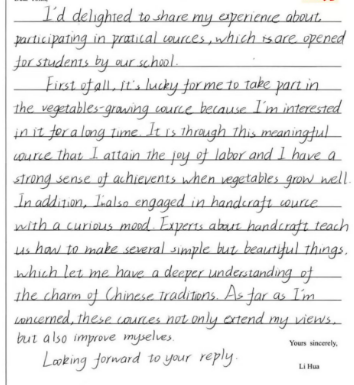 I'd delighted to share my experience about
participating in pratical cources, which is are opened
for students by our school.
First of all, it's lucky for me to take part in
the vegetables-growing cource because I'm interested
in it for a long time. It is through this meaningful
cource that I attain the joy of labor and I have a
strong sense of achievents when vegetables grow well.
In addition, I'm also engaged in handcraft cource
with a curious mood. Experts about handcraft teach
us how to make several simple but beautiful things,
which let me have a deeper understanding of
the charm of Chinese traditions. As far as I'm
concerned, these cources not only extend my views,
but also improve myselves.
Yours sincerely,
Looking forward to your reply.
Li Hua